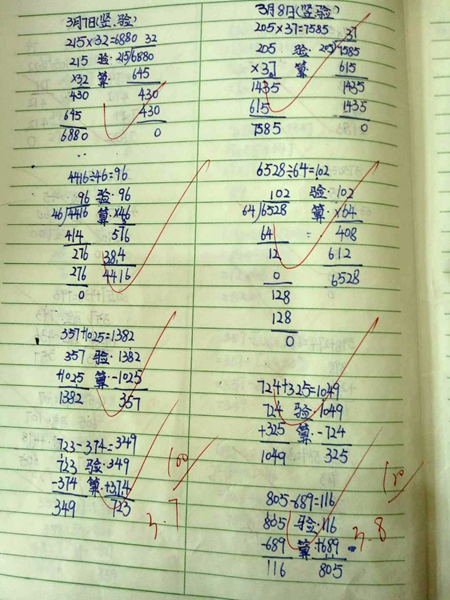 3月7日(竖.验)
215×32=6880 32
215 验 215/6880
×32 算 645
430 430
645 430
6880 0
4416÷46=96
96 验 96
46/4416 算 ×46
414 576
276 384
276 4416
0
357+1025=1382
357 验 1382
+1025 算 -1025
1382 357
723-374=349
723 验 349
-374 算 +374
349 723
100
3.7
3月8日(竖.验)
205×37=7585 37
205 验 205/7585
×37 算 615
1435 1435
615 1435
7585 0
6528÷64=102
102 验 102
64/6528 算 ×64
64 408
12 612
0 6528
128
128
0
724+325=1049
724 验 1049
+325 算 -724
1049 325
805-689=116
805 验 116
-689 算 +689
116 805
100
3.8